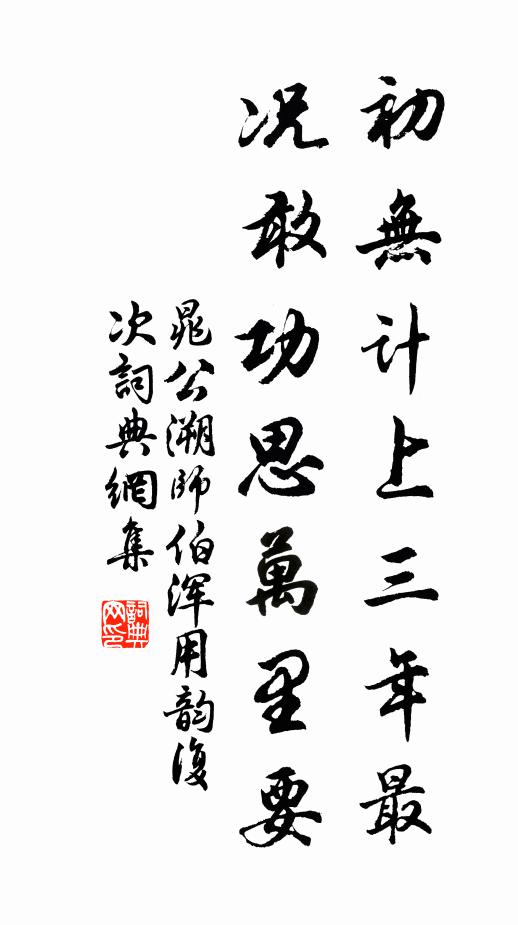 初無计上三年最
况敢功思萬里要
晁公溯師伯浑用韵復
次詞典網集
詞典网印